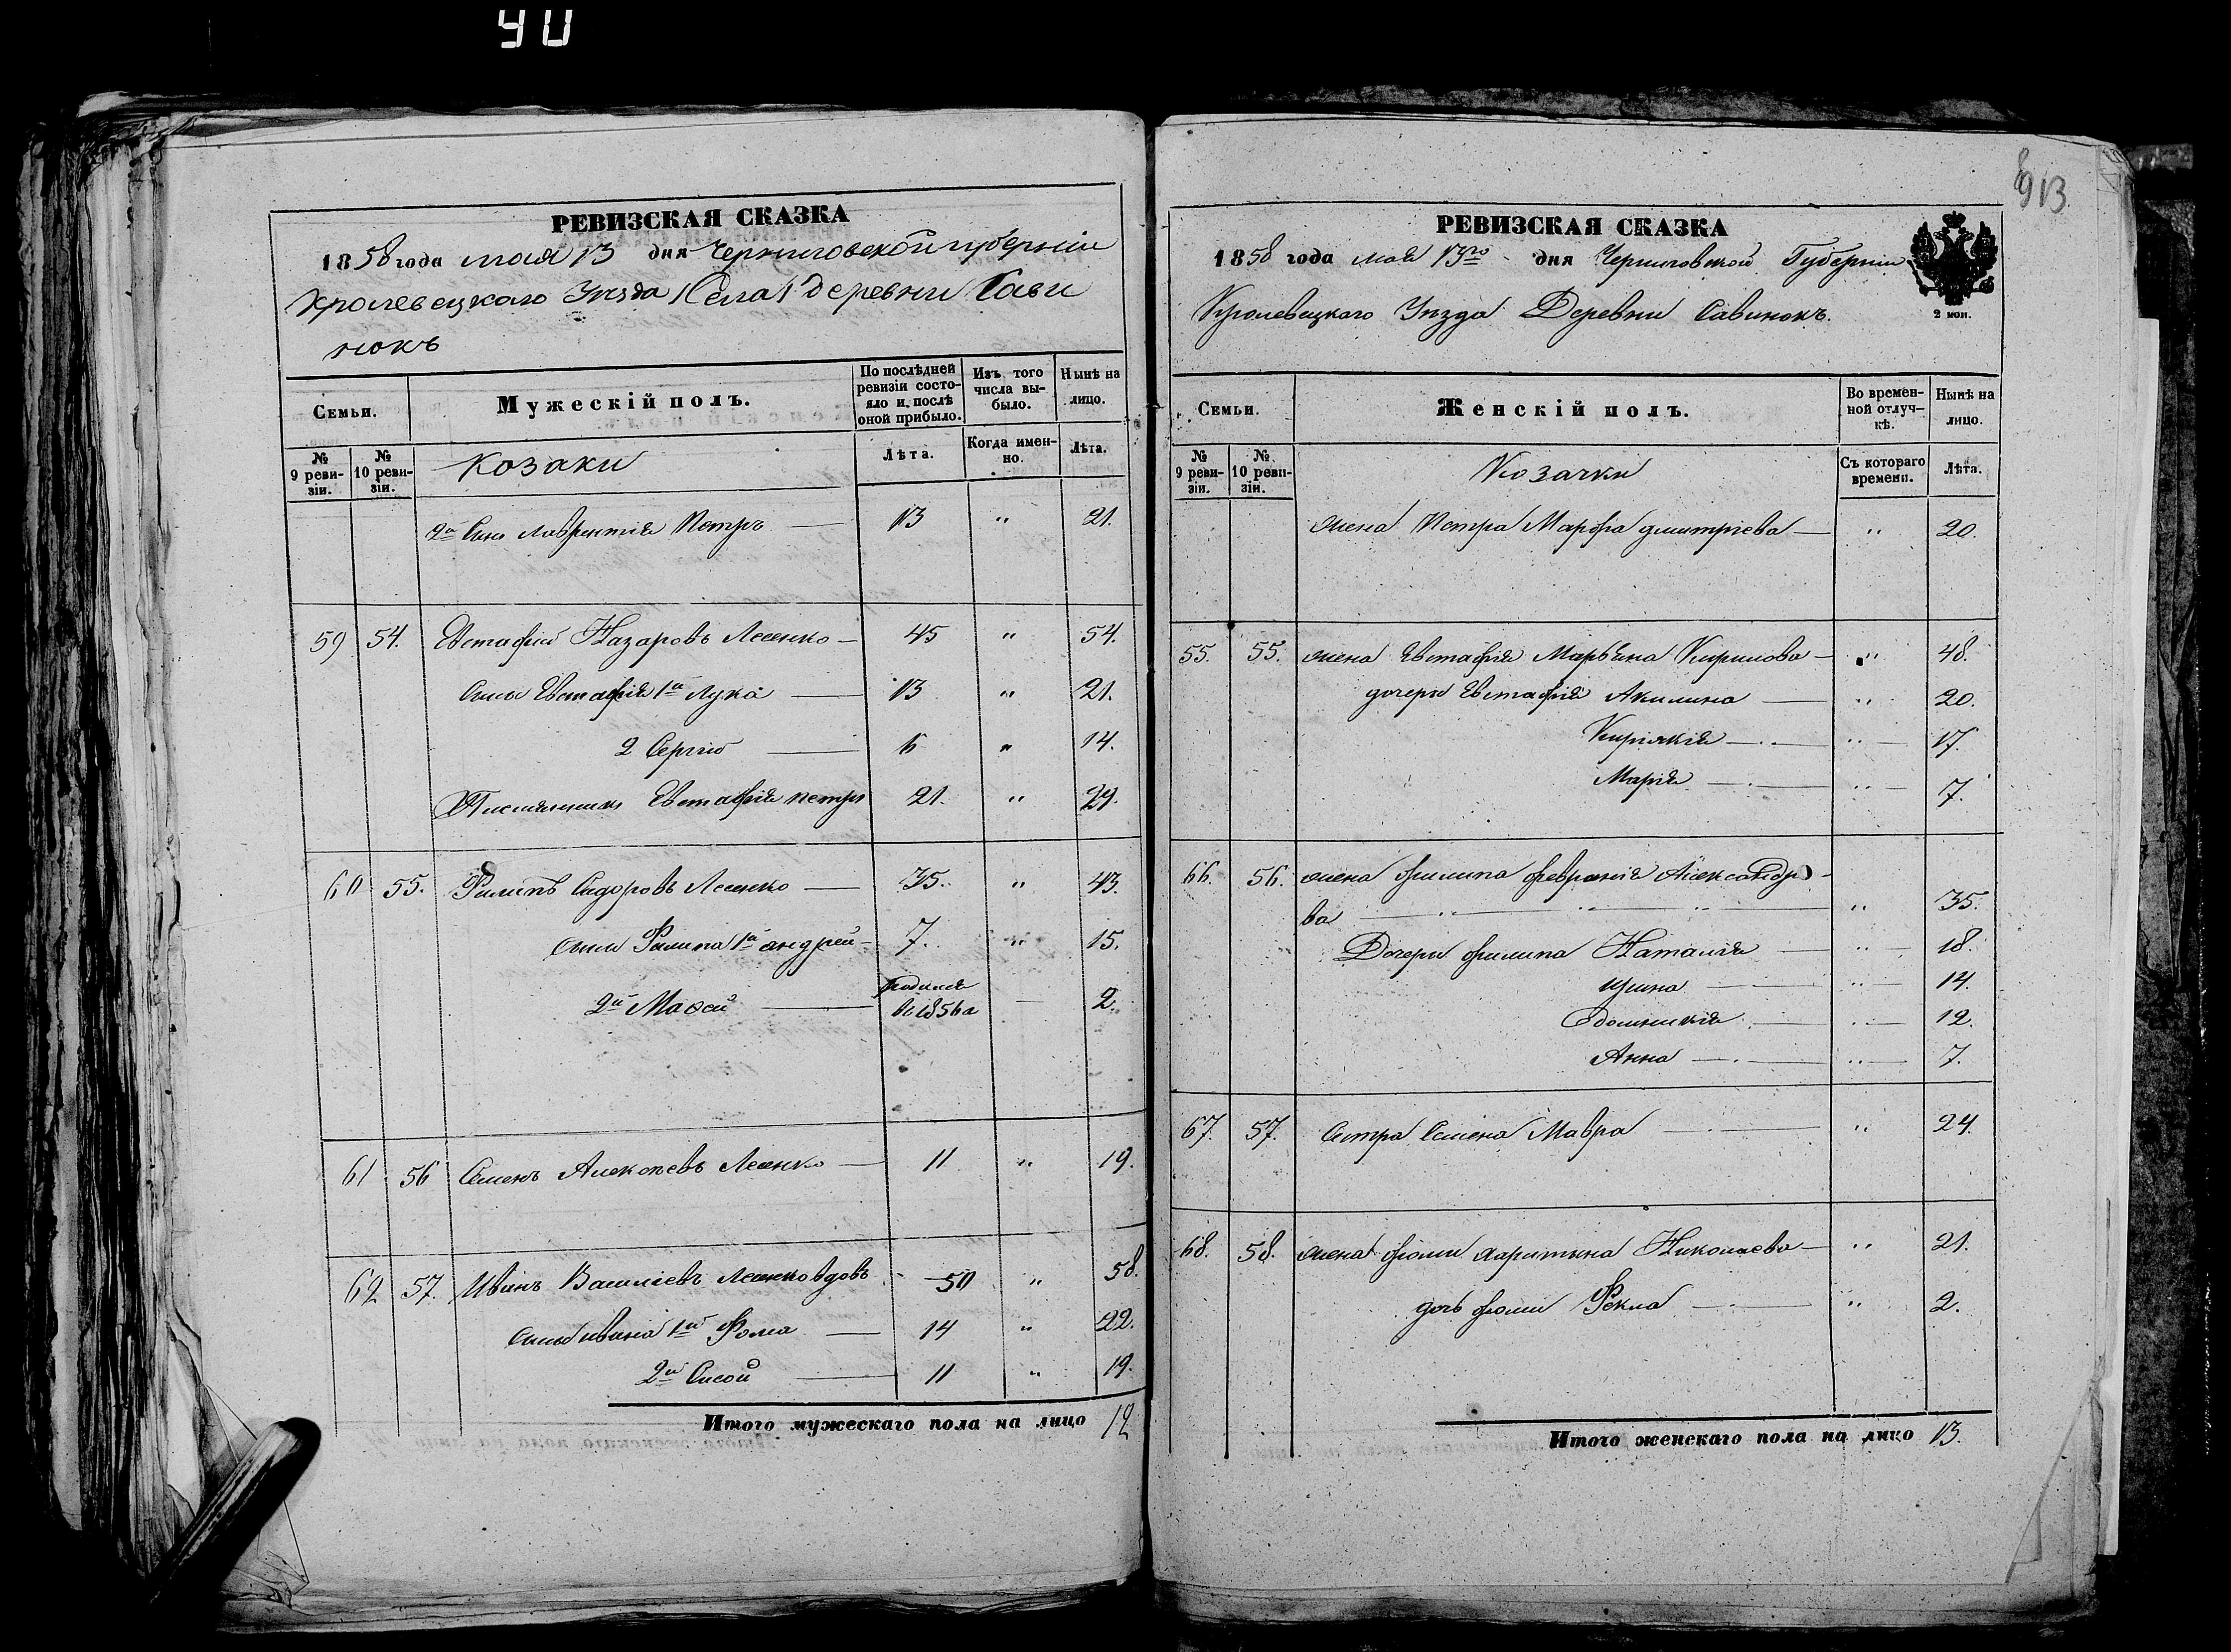 90
РЕВИЗСКАЯ СКАЗКА
1858 года мая 13 дня Черниговской губерніи
Кролевецкаго Уезда (Села) деревни Сави
нокъ
Семьи.
Мужескій полъ.
По послѣдней ревизіи состояло и послѣ оной прибыло.
Изъ того числа выбыло.
Нынѣ на лицо.
№ 9 ревизіи.
№ 10 ревизіи.
Козаки
Лѣта.
Когда именно.
Лѣта.
2й Сынъ Лаврентія Петръ — 13 " 21.
59 54. Евстафій Назаровъ Лесенко — 45 " 54.
Сыны Евстафія 1й Лука — 13 " 21.
2 Сергій — 6 " 14.
Евстафія Петръ 21. " 29.
60 55. Филипъ Сидоровъ Лесенко — 35. " 43.
сыны Филипа 1й андрей — 7. " 15.
2й Мафей — родился в 1856 — 2.
61 56 Семенъ Алексѣевъ Лесенко — 11 " 19.
62 57. Иванъ Василіевъ Лесенко вдовъ 50 " 58.
сыны ивана 1й Фома — 14 " 22.
2й Сисой — 11 " 19.
Итого мужескаго пола на лицо 12
913
РЕВИЗСКАЯ СКАЗКА
1858 года мая 13го дня Черниговской Губерніи
Кролевецкаго Уезда Деревни Савинокъ.
2 коп.
Семьи.
Женскій полъ.
Во временной отлучкѣ.
Нынѣ на лицо.
№ 9 ревизіи.
№ 10 ревизіи.
Козачки
Съ котораго времени.
Лѣта.
жена Петра Марфа дмитріева — " 20.
55. 55. жена Евстафія Марьяна Кирилова — " 48.
дочери Евстафія Акилина — " 20.
Киріякія — " 17.
Марія — " 7.
66. 56. жена филипа февронія Александро-
ва — " 35.
Дочери филипа Наталія — " 18.
ирина — " 14.
— " 12.
Анна — " 7.
67. 57. Сестра Семена Мавра — " 24.
68. 58. жена фомы харитина Николаева — " 21.
дочь фомы Фекла — " 2.
Итого женскаго пола на лицо 13.